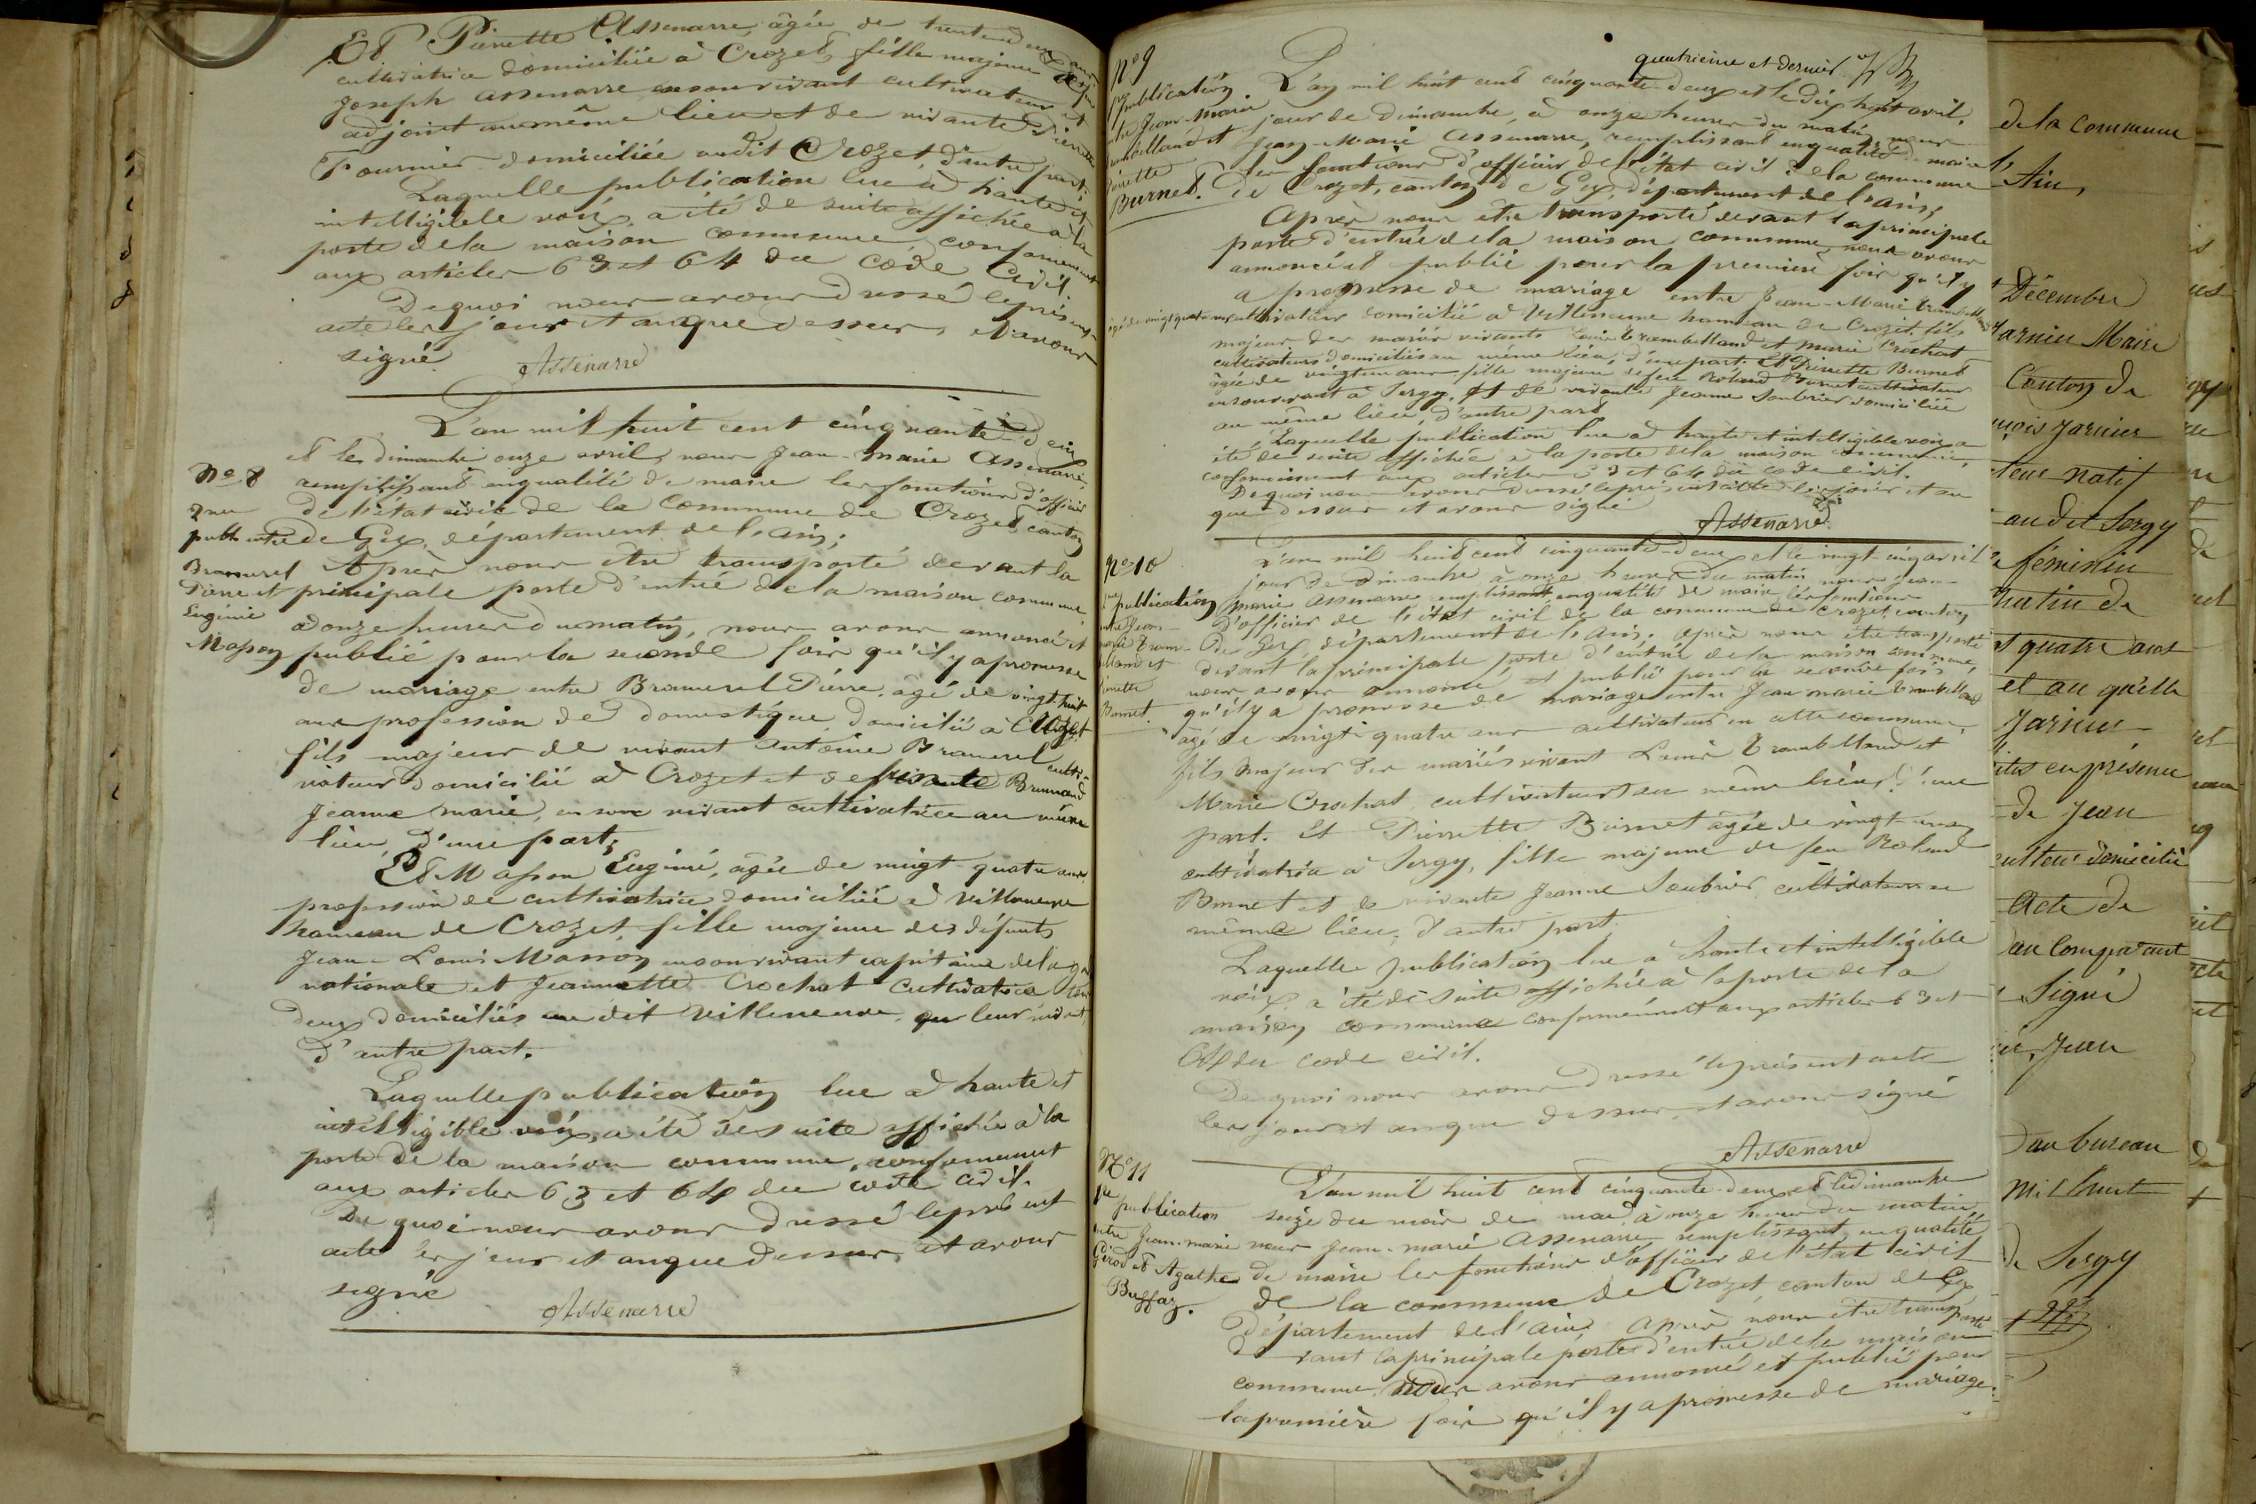 Et Pierrette Assenarre, âgée de trente deux ans
cultivatrice domiciliée à Crozet, fille majeure de feu
Joseph Assenarre en son vivant cultivateur et
adjoint au même lieu et de vivante Pierrette
Fournier domiciliée audit Crozet, d'autre part.
Laquelle publication lue à haute et
intelligible voix, a été de suite affichée à la
porte de la maison commune conformément
aux articles 63 et 64 du Code Civil
De quoi nous avons dressé le présent
acte les jour et an que dessus, et avons
signé. Assenarre
L'an mil huit cent cinquante deux
et le dimanche onze avril, nous Jean-Marie Assenarre
N° 8 remplissant en qualité de maire les fonctions d'officier
2me de l'état civil de la commune de Crozet, canton
publ. entre de Gex, département de l'ain;
Bramerel Après nous être transporté devant la
Pierre et principale porte d'entrée de la maison commune
Eugénie à onze heures du matin, nous avons annoncé et
Masson publié pour la seconde fois qu'il y a promesse
de mariage entre Bramerel Pierre, âgé de vingt huit
ans profession de domestique, domicilié à Crozet
fils majeur de vivant Antoine Bramerel culti-
vateur domicilié à Crozet et de Brunand
Jeanne marie, en son vivant cultivatrice au même
lieu, d'une part;
Et Masson Eugénie, âgée de vingt quatre ans
profession de cultivatrice domiciliée à Villeneuve
hameau de Crozet, fille majeure des défunts
Jean-Louis Masson en son vivant capitaine de la
nationale et Jeannette Crochat cultivatrice tous
deux domiciliés audit Villeneuve, de leur vivant
d'autre part.
Laquelle publication lue à haute et
intelligible voix, a été de suite affichée à la
porte de la maison commune, conformément
aux articles 63 et 64 du code civil.
De quoi nous avons dressé le présent
acte les jour et an que dessus et avons
signé Assenarre
quatrième et dernier
N° 9
1re publication L'an mil huit cent cinquante deux et le dix huit avril,
entre Jean-Marie jour de dimanche, à onze heures du matin, nous
Trambelland et Jean-Marie Assenarre, remplissant en qualité de maire
Pierrette les fonctions d'officier de l'état civil de la commune
Burnet. de Crozet, canton de Gex, département de l'ain;
Après nous être transporté devant la principale
porte d'entrée de la maison commune, nous avons
annoncé et publié pour la première fois qu'il y
a promesse de mariage entre Jean-Marie Trambelland
âgé de vingt quatre ans cultivateur domicilié à Villeneuve hameau de Crozet, fils
majeur des mariés vivants Louis Trambelland et Marie Crochat
cultivateurs domiciliés au même lieu, d'une part. Et Pierrette Burnet
âgée de vingt un ans fille majeure de feu Roland Burnet cultivateur
en son vivant à Sergy, et de vivante Jeanne Soubrier domiciliée
au même lieu, d'autre part
Laquelle publication lue à haute et intelligible voix a
été de suite affichée à la porte de la maison commune,
conformément aux articles 63 et 64 du code civil.
De quoi nous avons dressé le présent acte les jour et an
que dessus et avons signé Assenarre
N° 10 L'an mil huit cent cinquante deux et le vingt cinq avril
jour de dimanche à onze heures du matin nous Jean-
publication Marie Assenarre remplissant en qualité de maire les fonctions
entre Jean- d'officier de l'état civil de la commune de Crozet, canton
marie Tram- de Gex, département de l'ain; après nous être transporté
belland et devant la principale porte d'entrée de la maison commune,
Pierrette nous avons annoncé et publié pour la seconde fois
Burnet. qu'il y a promesse de mariage entre Jean marie Trambelland
âgé de vingt quatre ans cultivateur en cette commune,
fils majeur des mariés vivant Louis Trambelland et
Marie Crochat, cultivateurs au même lieu, d'une
part. Et Pierrette Burnet âgée de vingt un ans
cultivatrice à Sergy, fille majeure de feu Roland
Burnet et de vivante Jeanne Soubrier, au
même lieu, d'autre part.
Laquelle publication lue à haute et intelligible
voix, a été de suite affichée à la porte de la
maison commune conformément aux articles 63 et
64 du code civil.
De quoi nous avons dressé le présent acte
les jour et an que dessus et avons signé
Assenarre
N° 11 L'an mil huit cent cinquante deux et le dimanche
1re publication seize du mois de mai, à onze heures du matin,
entre Jean-marie nous Jean-marie Assenarre remplissant en qualité
Girod et Agathe de maire les fonctions d'officier de l'état civil
Buffaz. de la commune de Crozet, canton de Gex
département de l'ain; après nous être transporté
devant la principale porte d'entrée de la maison
commune, nous avons annoncé et publié pour
la première fois qu'il y a promesse de mariage
de la commune
Ain,
Décembre
Jarnier Maire
Canton de
Jarnier
natif
audit Sergy
féminin
matin de
quatre ans
et au qu'elle
Jarnier
en présence
de Jean
domicilié
Acte de
au Comparant
Signé
Jean
au bureau
Mil huit
de Sergy